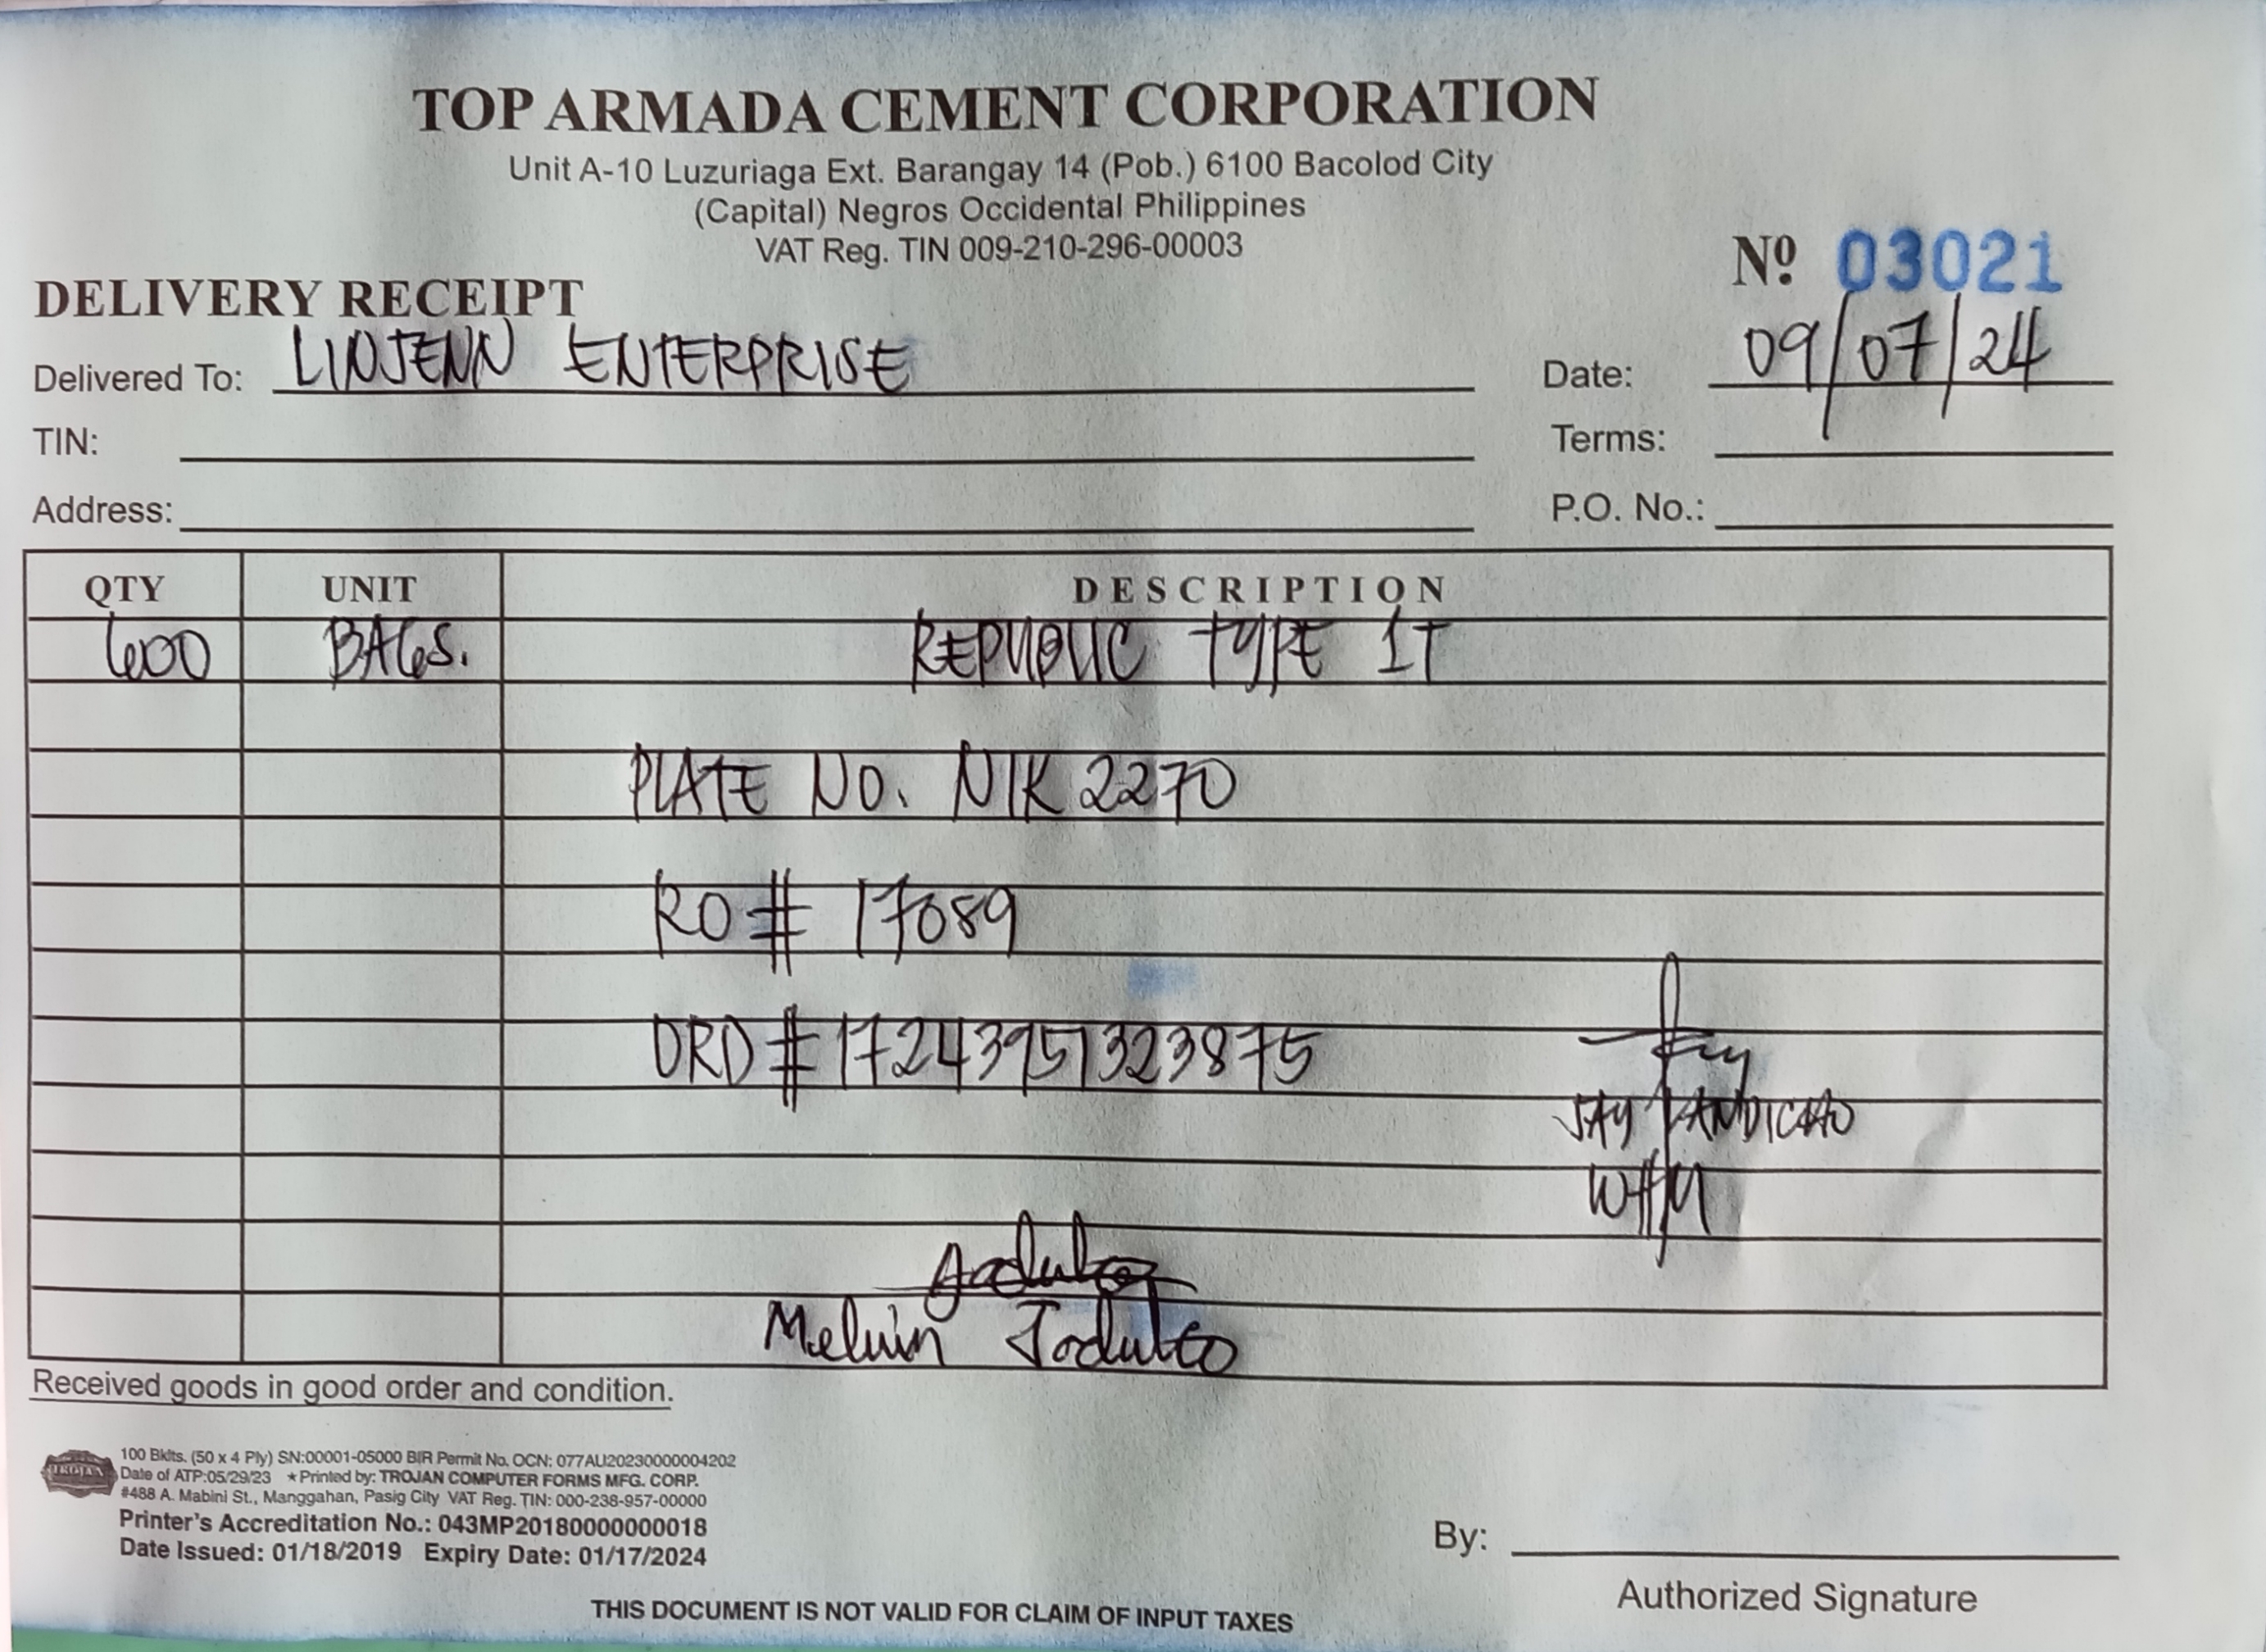 TOP ARMADA CEMENT CORPORATION
Unit A-10 Luzuriaga Ext. Barangay 14 (Pob.) 6100 Bacolod City
(Capital) Negros Occidental Philippines
VAT Reg. TIN 009-210-296-00003
Nº 03021
DELIVERY RECEIPT
Delivered To: LINJENN ENTERPRISE Date: 09/07/24
TIN: Terms:
Address: P.O. No.:
QTY UNIT DESCRIPTION
600 BAGS. REPUBLIC TYPE 1T
PLATE NO. NIK 2270
RO # 17089
DRD # 17243951323875
JAY
WHM
Melvin Jodulto
Received goods in good order and condition.
TROJAN
100 Bklts. (50 x 4 Ply) SN:00001-05000 BIR Permit No. OCN: 077AU20230000004202
Date of ATP:05/29/23 ★Printed by: TROJAN COMPUTER FORMS MFG. CORP.
#488 A. Mabini St., Manggahan, Pasig City VAT Reg. TIN: 000-238-957-00000
Printer's Accreditation No.: 043MP20180000000018
Date Issued: 01/18/2019 Expiry Date: 01/17/2024
By:
Authorized Signature
THIS DOCUMENT IS NOT VALID FOR CLAIM OF INPUT TAXES